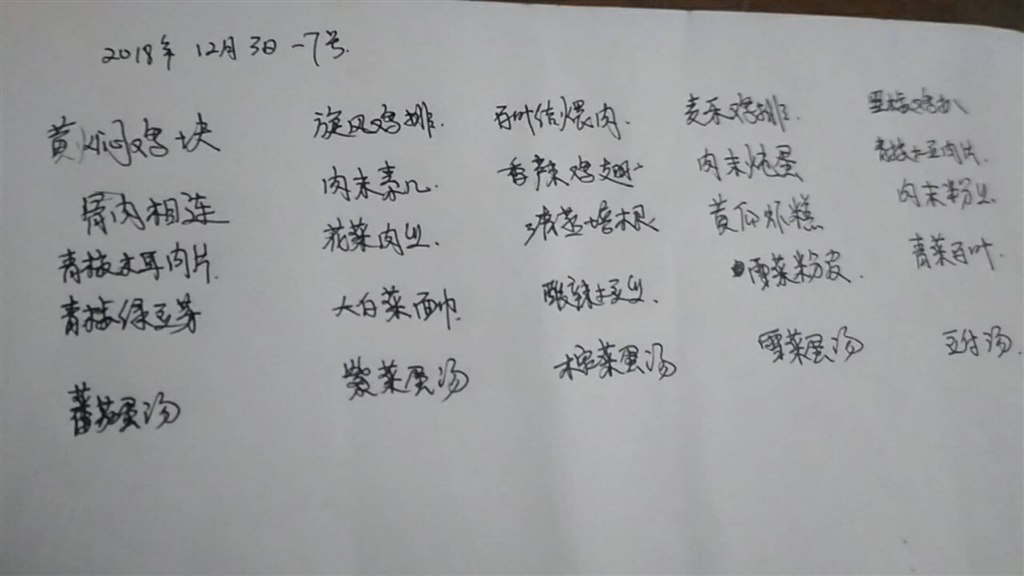 2018年12月3日-7号.
黄焖鸡块
骨肉相连
青椒木耳肉片
青椒绿豆芽
蕃茄蛋汤
旋风鸡排.
肉末素几.
花菜肉丝.
大白菜面巾.
紫菜蛋汤
百叶结煨肉.
香辣鸡翅
清蒸培根
酸辣土豆丝.
榨菜蛋汤
麦乐鸡排.
肉末炖蛋
黄瓜虾糕
雪菜粉皮.
雪菜蛋汤
鸡扒
青椒土豆肉片.
肉末粉丝.
青菜百叶.
豆付汤.